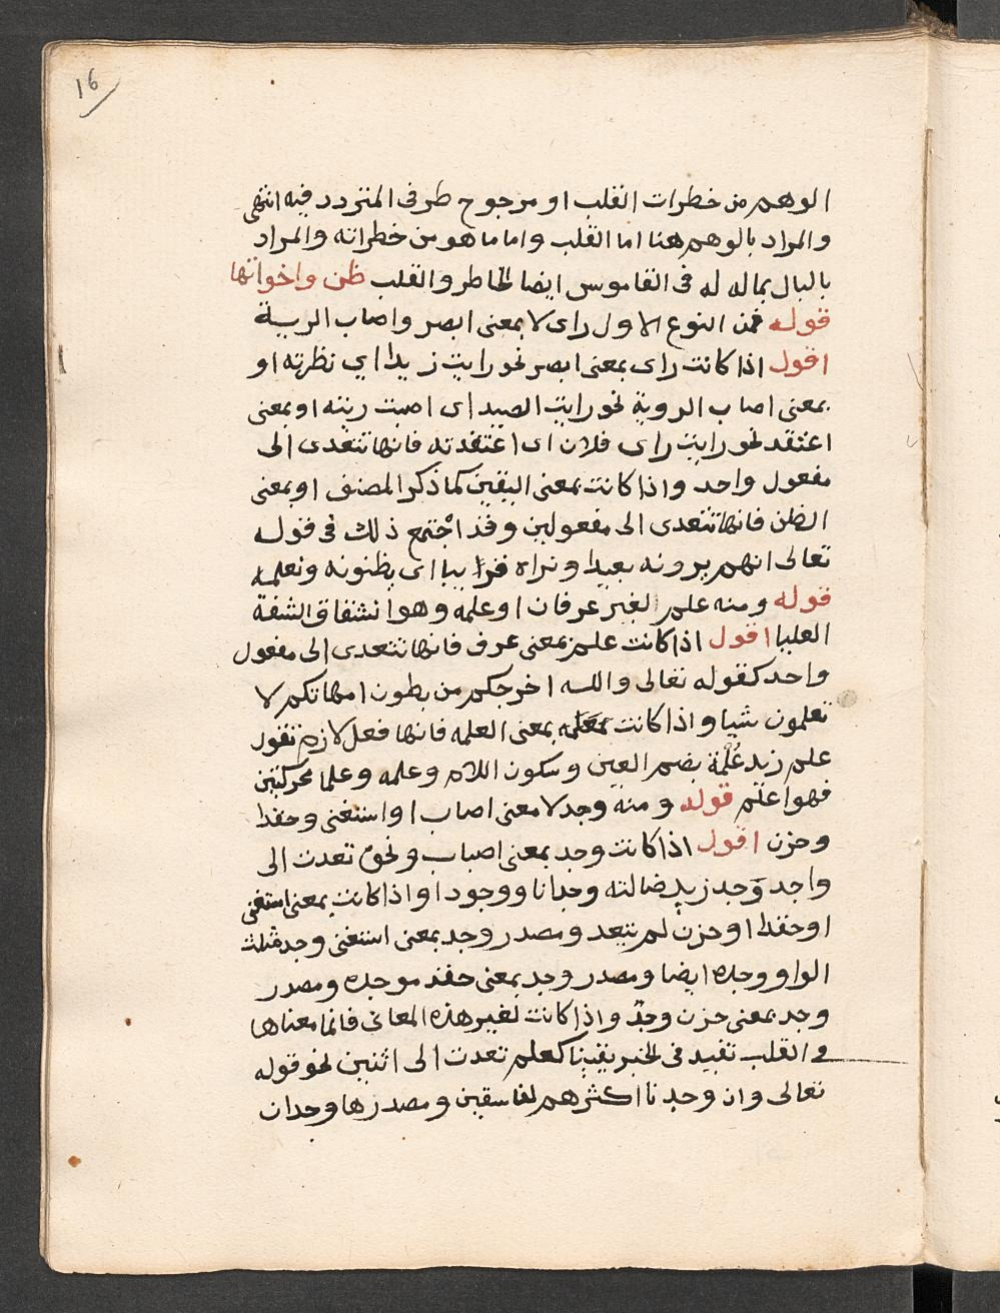 16
الوهم من خطرات القلب او مرجوح طرفى المتردد فيه انتهى
والمراد بالوهم هنا اما القلب واما ما هو من خطراته والمراد
بالبال بماله له فى القاموس ايضا الخاطر والقلب ظن واخواتها
قوله فمن النوع الاول راى لا بمعنى ابصر واصاب الرية
اقول اذا كانت راى بمعنى ابصر نحو رايت زيدا اي نظرته او
بمعنى اصاب الروية نحو رايت الصيد اى اصبت ريته او بمعنى
اعتقد نحو رايت راى فلان اى اعتقدته فانها تتعدى الى
مفعول واحد واذا كانت بمعنى اليقين كما ذكر المصنف او بمعنى
الظن فانها تتعدى الى مفعولين وقد اجتمع ذلك فى قوله
تعالى انهم يرونه بعيدا ونراه قريبا اى يظنونه ونعلمه
قوله ومنه علم لغير عرفان او علمه وهو انشقاق الشفة
العليا اقول اذا كانت علم بمعنى عرف فانها تتعدى الى مفعول
واحد كقوله تعالى والله اخرجكم من بطون امهاتكم لا
تعلمون شيا واذا كانت بمعنى العلمه فانها فعل لازم تقول
علم زيد عُلْمة بضم العين وسكون اللام وعلمه وعلما محركتين
فهو اعلم قوله ومنه وجد لا معنى اصاب او استغنى وحقدا
وحزن اقول اذا كانت وجد بمعنى اصاب ونحو تعدت الى
واحد وَجد زيد ضالته وجدانا ووجودا واذا كانت بمعنى استغنى
او حقد او حزن لم تتعد ومصدر وجد بمعنى استغنى وجد مثلث
الواو وجده ايضا ومصدر وجد بمعنى حقد موجده ومصدر
وجد بمعنى حزن وجد واذا كانت لغير هذه المعانى فانما معناها
فى القلب تفيد فى الخبر يقينا كعلم تعدت الى اثنين نحو قوله
تعالى وان وجدنا اكثرهم لفاسقين ومصدرها وجدان